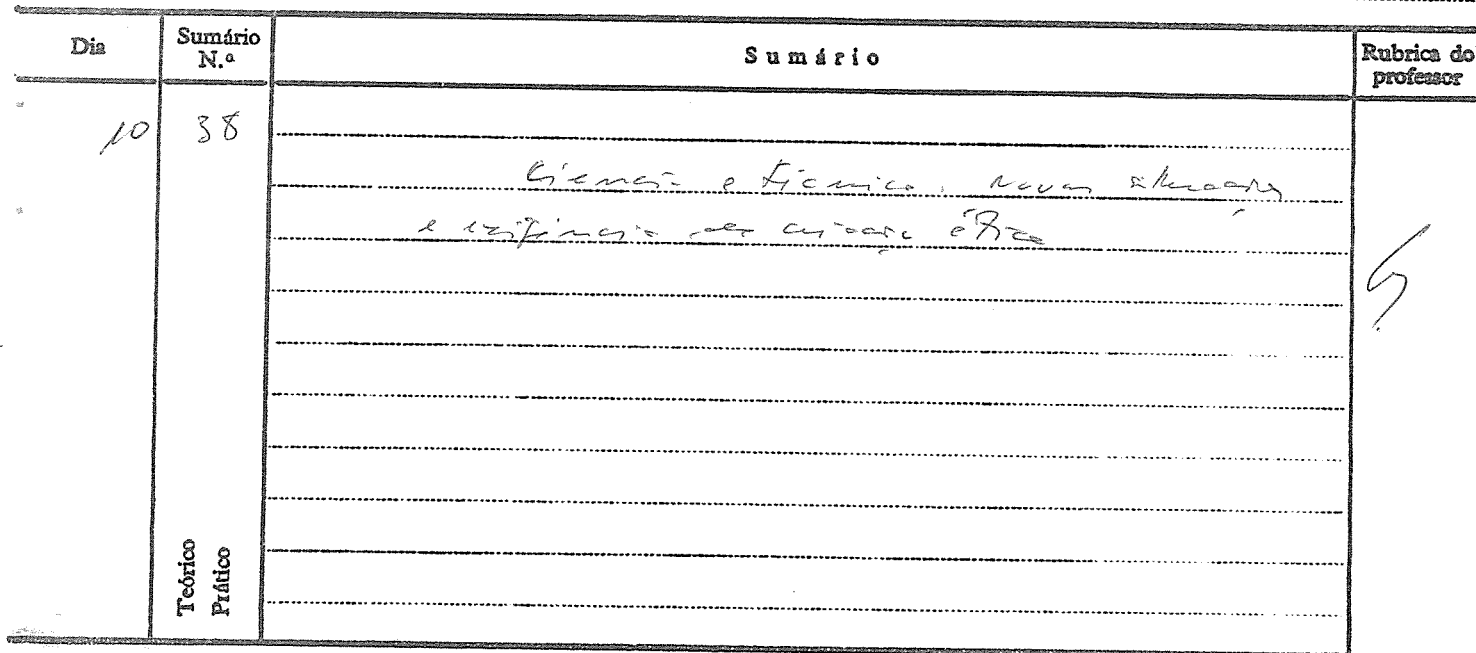 Dia
Sumário
N.º
Sumário
Rubrica do
professor
10
38
Ciência e técnica. Novas situações
e exigência ética
Teórico
Prático